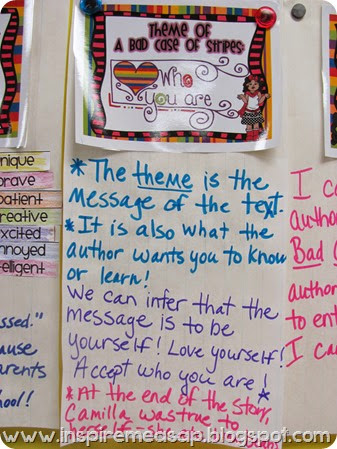 THEME OF
A BAD CASE OF STRIPES:
Who
you are
* The theme is the
message of the text
* It is also what the
author wants you to know
or learn!
We can infer that the
message is to be
yourself! Love yourself!
Accept who you are!
* At the end of the story,
Camilla was true to
herself - she
nique
brave
patient
creative
xcited
nnoyed
telligent
ssed."
ause
arents
hool!
I ca
author
Bad C
author
to ent
I ca
www.inspiremeasap.blogspot.com